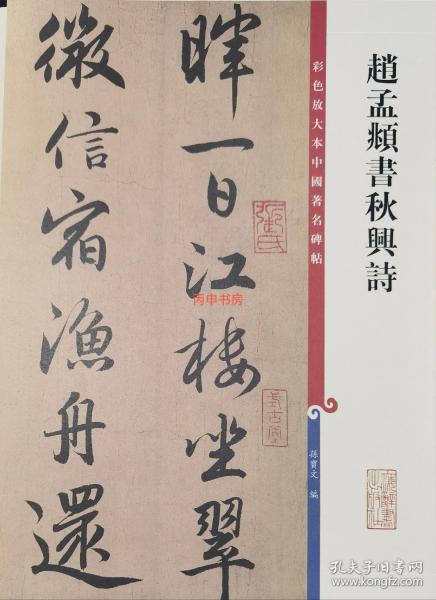 趙孟頫書秋興詩
彩色放大本中國著名碑帖
孫寶文 編
暉一日江樓坐翠
微信宿漁舟還
丙申书房
孔夫子旧书网
www.kongfz.com